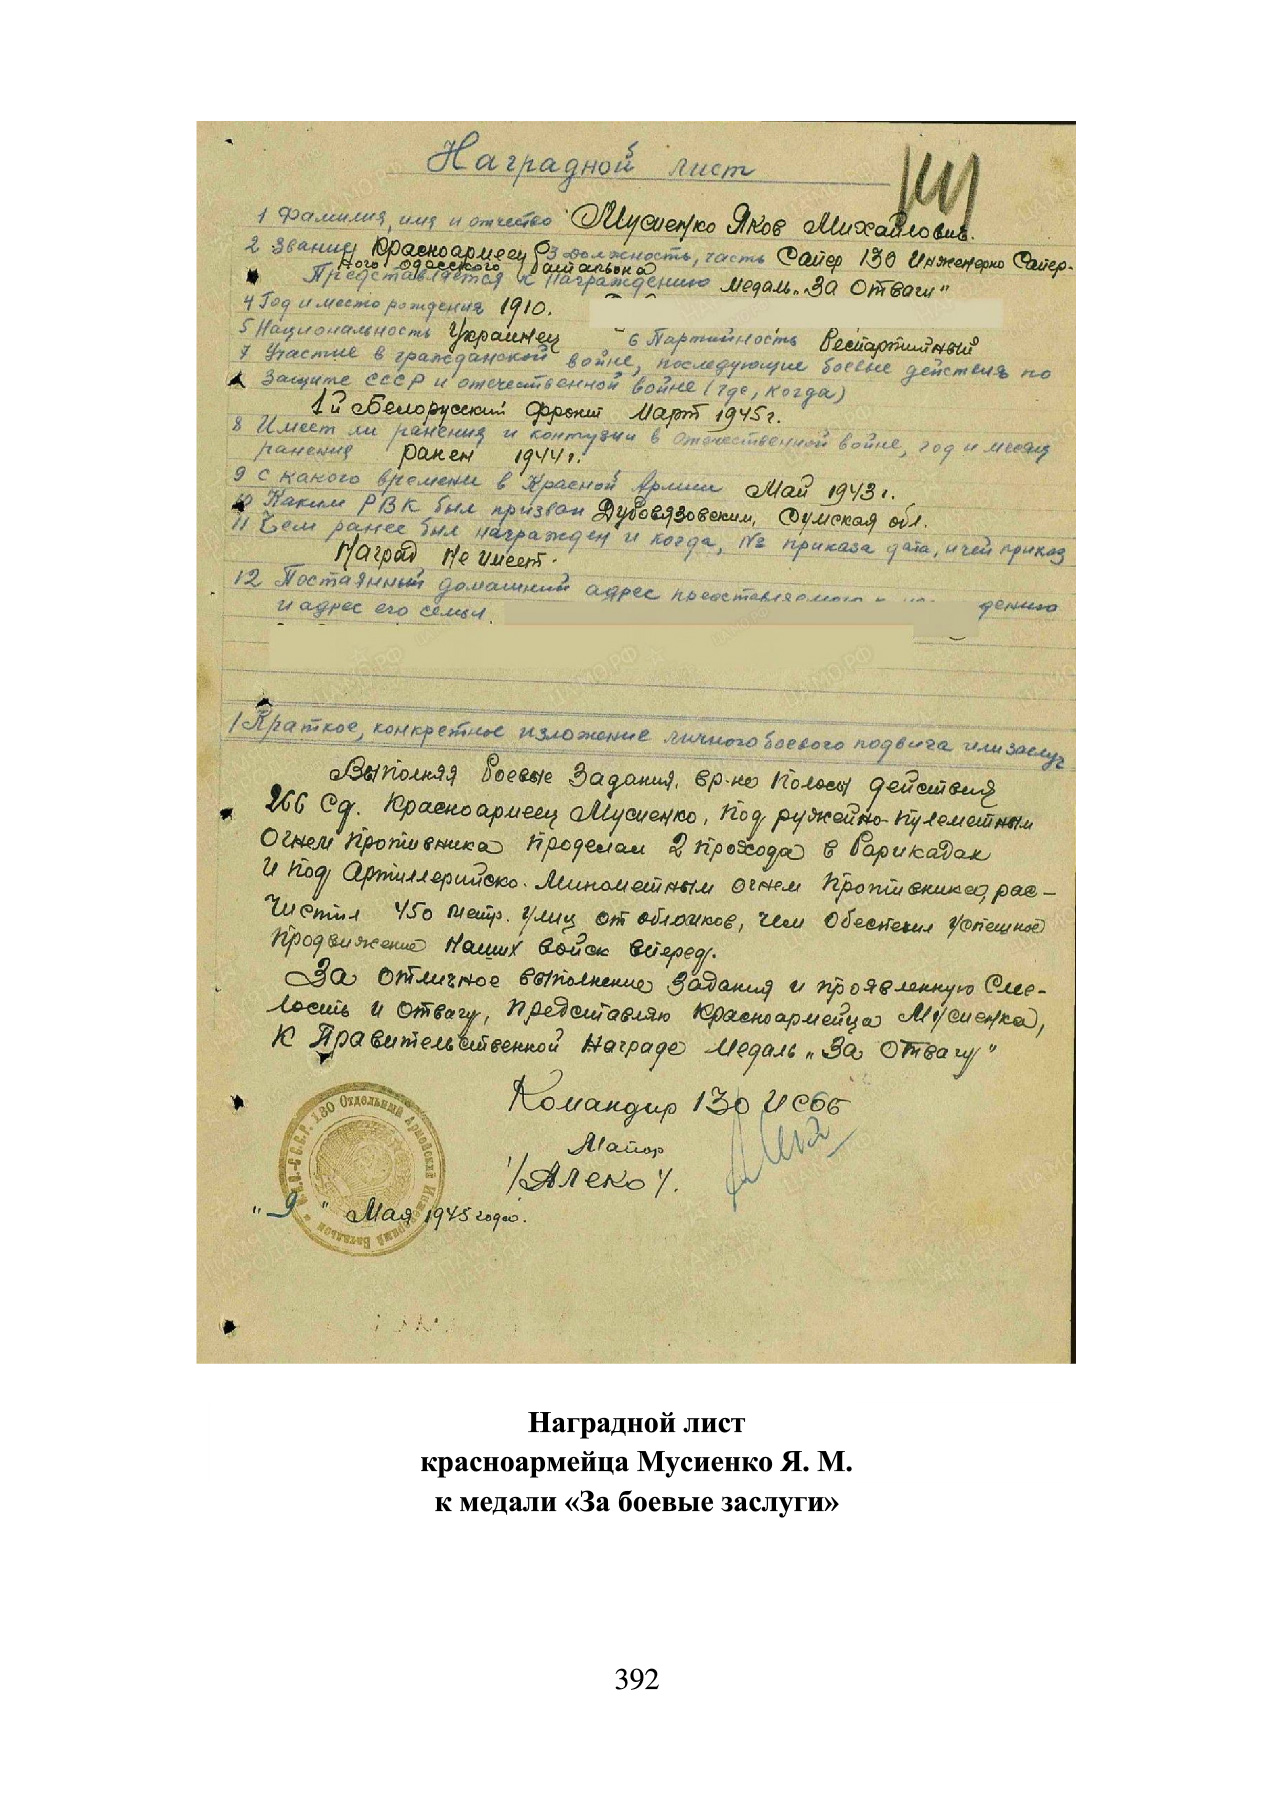 Наградной лист
1 Фамилия, имя и отчество Мусиенко Яков Михайлович.
2 Звание Красноармеец 3 Должность, часть Сапер 130 Инженерно Сапер-
ного одесского батальона
Представляется к награждению медаль „За Отвагу"
4 Год и место рождения 1910.
5 Национальность Украинец 6 Партийность Беспартийный
7 Участие в гражданской войне, последующие боевые действия по
защите СССР и отечественной войне (где, когда)
1й Белорусский фронт Март 1945г.
8 Имеет ли ранения и контузии в отечественной войне, год и месяц
ранения ранен 1944г.
9 С какого времени в Красной Армии Май 1943г.
10 Каким РВК был призван Дубовязовским, Сумская обл.
11 Чем ранее был награжден и когда, № приказа дата, и чей приказ
Наград Не имеет.
12 Постоянный домашний адрес представляемого к дению
и адрес его семьи.
1 Краткое, конкретное изложение личного боевого подвига или заслуг
Выполняя боевые Задания, в р-не Полосы действия
266 Сд. Красноармеец Мусиенко, под ружейно-пулеметным
Огнем Противника Проделал 2 прохода в Барикадах
И под Артиллерийско-Минометным огнем Противника, рас-
Чистил 450 метр. Улиц от обломков, чем Обеспечил Успешное
Продвижение Наших войск вперед.
За отличное выполнение Задания и проявленную Сме-
лость и отвагу, Представляю Красноармейца Мусиенка,
К Правительственной Награде Медаль „За Отвагу"
Командир 130 ИСбб
Майор
/Алеко/.
„9" Мая 1945 года.
Н.К.О.-С.С.С.Р. 130 Отдельный Армейский Инженерный Батальон
Наградной лист
красноармейца Мусиенко Я. М.
к медали «За боевые заслуги»
392